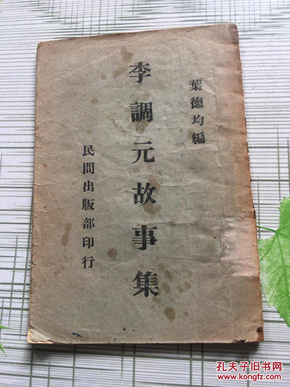 葉德均編
李調元故事集
民間出版部印行
孔夫子旧书网